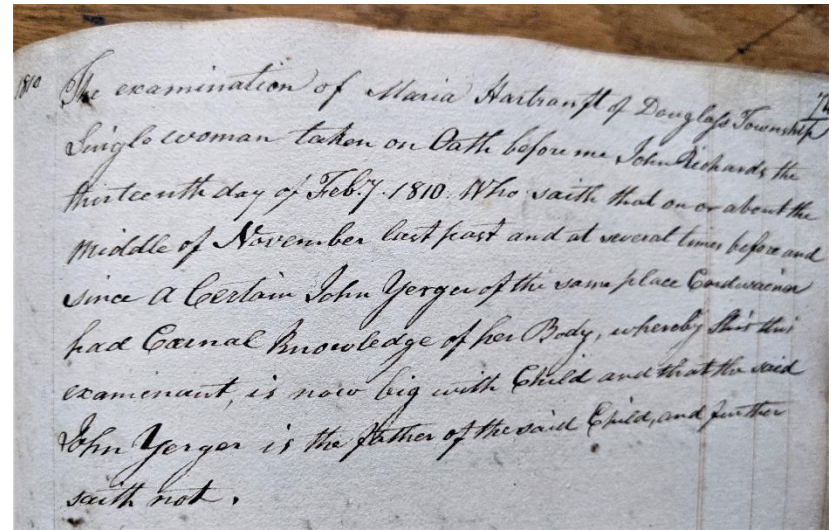 1810 The examination of Maria Hartranft of Douglass Township
Single woman taken on Oath before me John Richards the
thirteenth day of Feby. 1810. Who saith that on or about the
middle of November last past and at several times before and
since A Certain John Yerger of the same place Cordwainer
had Carnal Knowledge of her Body, whereby She this
examinant, is now big with Child and that the said
John Yerger is the father of the said Child, and further
saith not.